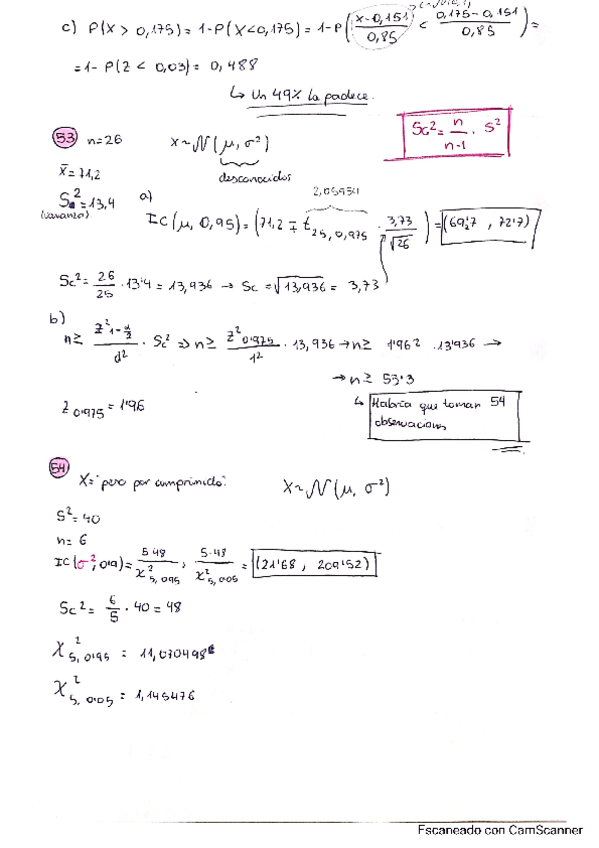 c) P(X > 0,175) = 1-P(X<0,175) = 1-P( x-0,151 / 0,85 < 0,175-0,151 / 0,85 ) =
= 1- P(Z < 0,03) = 0,488
↳ Un 49% la padece.
53 n=26 X~N(μ, σ²)
desconocidos
Sc² = n/n-1 · S²
x̄=71,2
S²=13,4
(varianza)
a) IC(μ, 0,95) = (71,2 ∓ t25, 0,975 · 3,73/√26) = (69'7 , 72'7)
Sc² = 26/25 · 13'4 = 13,936 → Sc = √13,936 = 3,73
b)
n ≥ Z²1-α/2 / d² · Sc² ⇒ n ≥ Z²0'975 / 1² · 13,936 → n ≥ 1'96² · 13'936 →
→ n ≥ 53'3
Z 0'975 = 1'96
↳ Habría que tomar 54
observaciones
54 X="peso por comprimido". X~N(μ, σ²)
S²=40
n= 6
IC(σ², 0'9) = 5·48 / χ²5, 0'95 , 5·48 / χ²5, 0'05 = (21'68 , 209'52)
Sc² = 6/5 · 40 = 48
χ²5, 0'95 = 11,070498
χ²5, 0'05 = 1,145476
Escaneado con CamScanner